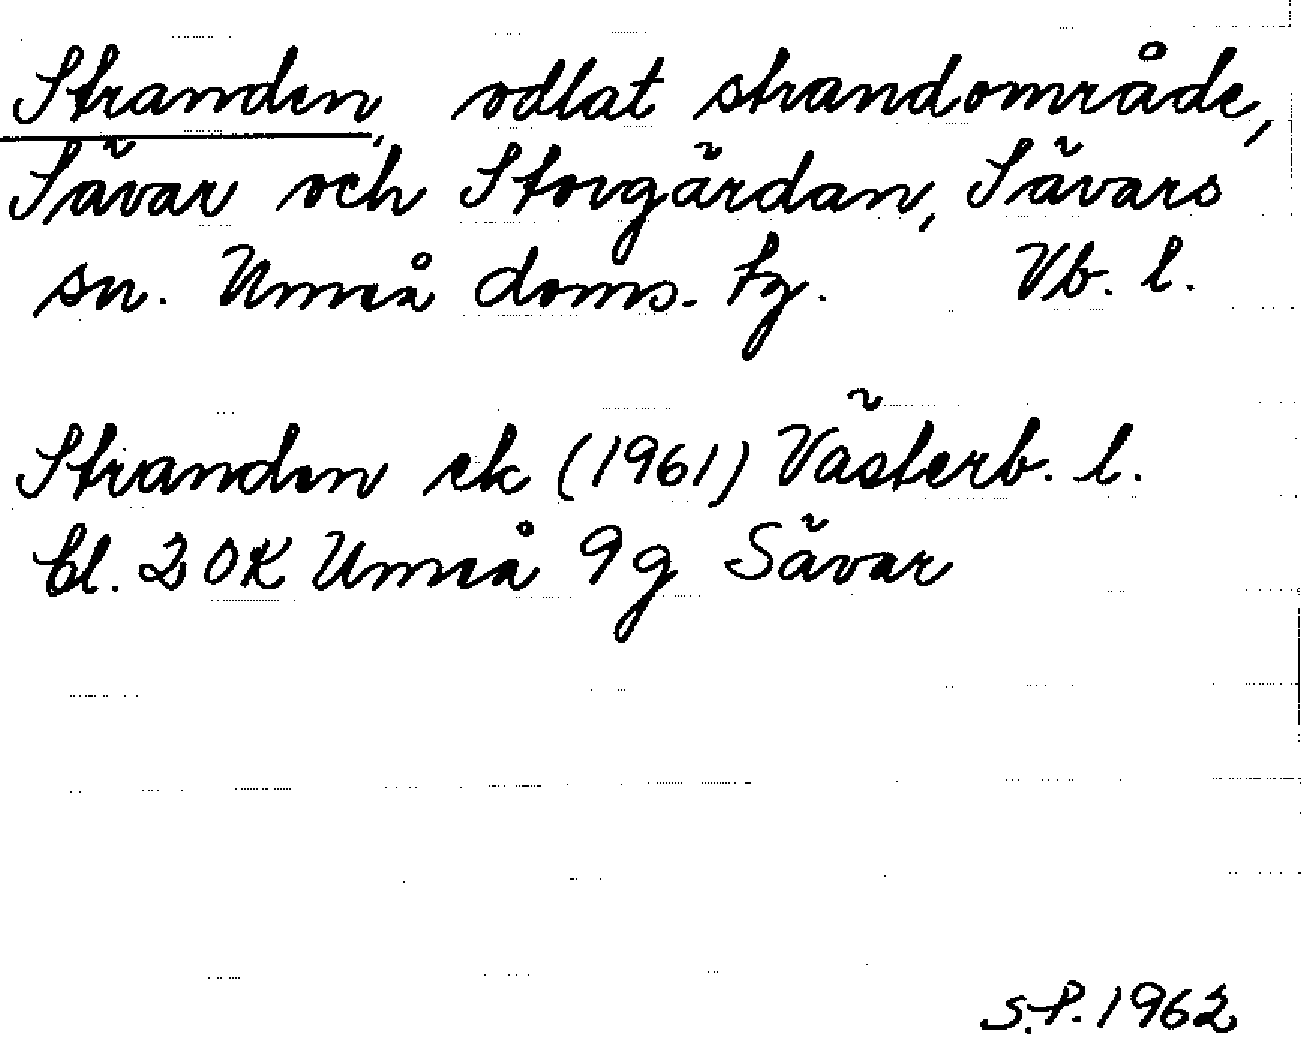 Stranden, odlat strandområde,
Sävar och Stovgärdan, Sävars
sn. Umeå doms. tg. Vb. l.
Stranden ek (1961) Västerb. l.
bl. 20K Umeå 9g Sävar
S.P. 1962